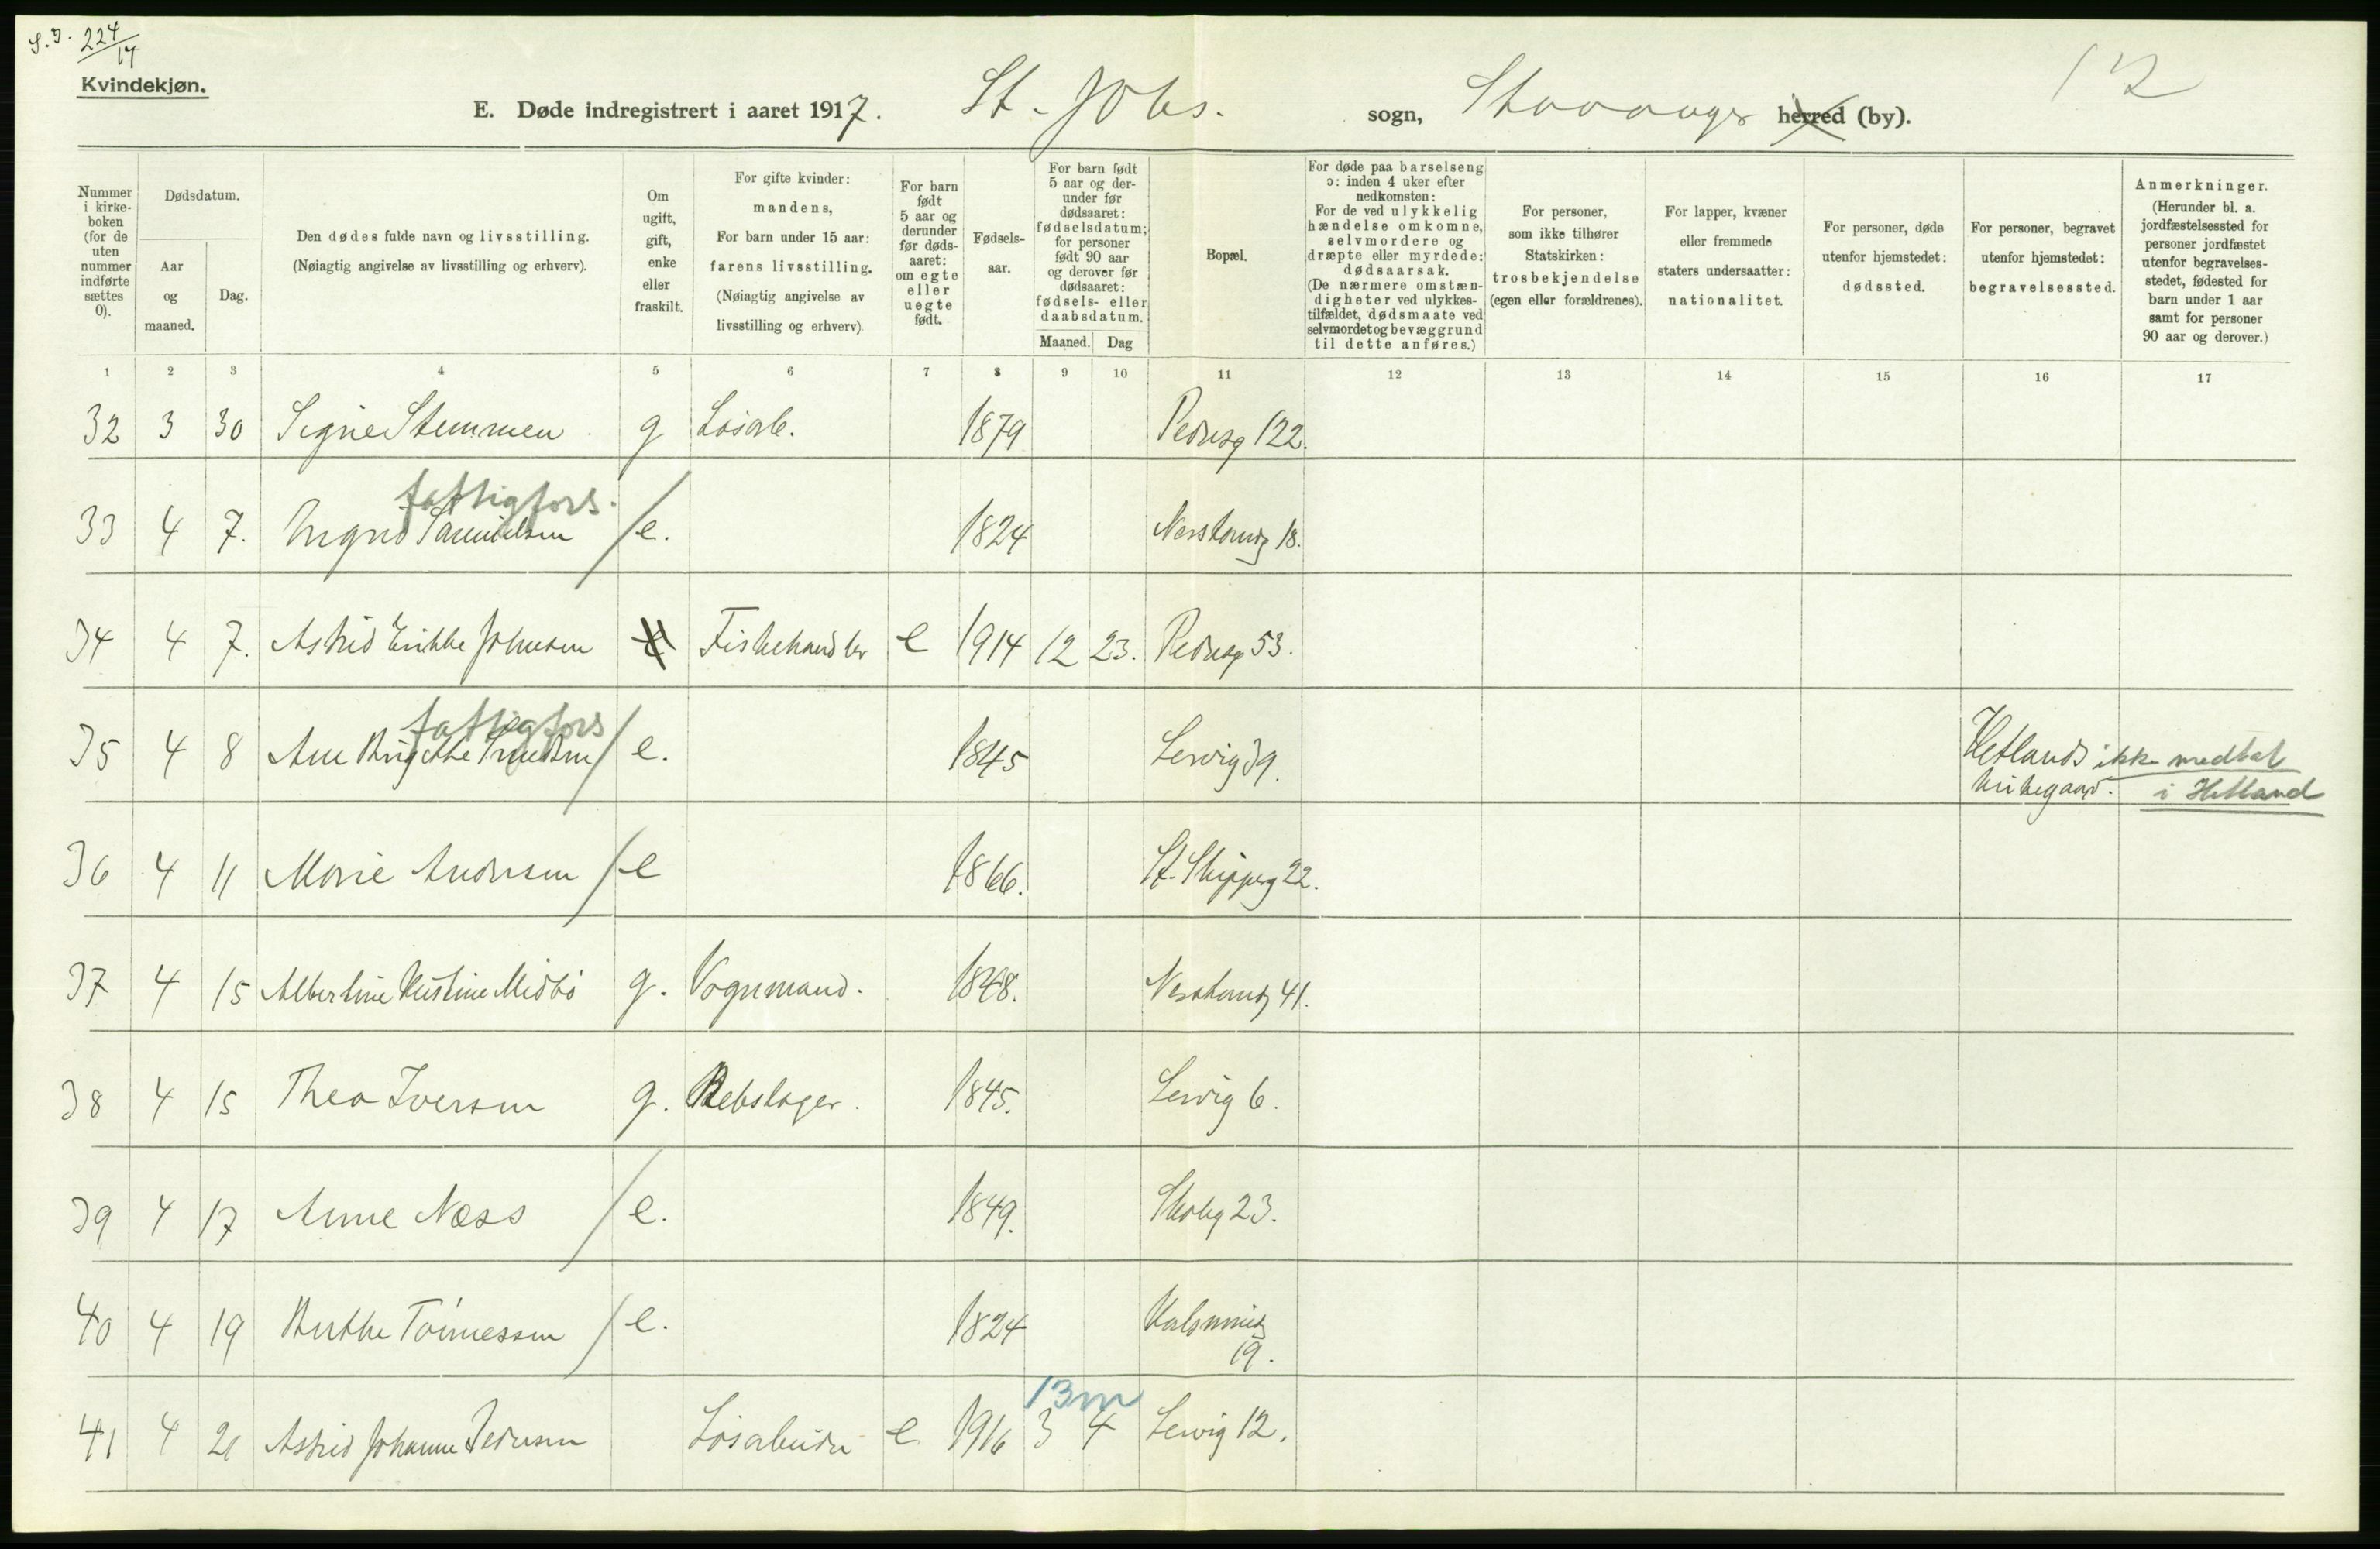 S.J. 224/17
Kvindekjøn.
E. Døde indregistrert i aaret 1917. St. Johs. sogn, Stavanger herred (by). 12
Nummer i kirkeboken (for de uten nummer indførte sættes 0).
Dødsdatum.
Aar og maaned.
Dag.
Den dødes fulde navn og livsstilling.
(Nøiagtig angivelse av livsstilling og erhverv).
Om ugift, gift, enke eller fraskilt.
For gifte kvinder: mandens,
For barn under 15 aar: farens livsstilling.
(Nøiagtig angivelse av livsstilling og erhverv).
For barn født 5 aar og derunder før dødsaaret: om egte eller uegte født.
Fødselsaar.
For barn født 5 aar og derunder før dødsaaret: fødselsdatum; for personer født 90 aar og derover før dødsaaret: fødsels- eller daabsdatum.
Maaned. Dag
Bopæl.
For døde paa barselseng ɔ: inden 4 uker efter nedkomsten:
For de ved ulykkelig hændelse omkomne, selvmordere og dræpte eller myrdede: dødsaarsak.
(De nærmere omstændigheter ved ulykkestilfældet, dødsmaate ved selvmordet og bevæggrund til dette anføres.)
For personer, som ikke tilhører Statskirken: trosbekjendelse (egen eller forældrenes).
For lapper, kvæner eller fremmede staters undersaatter: nationalitet.
For personer, døde utenfor hjemstedet: dødssted.
For personer, begravet utenfor hjemstedet: begravelsessted.
Anmerkninger.
(Herunder bl. a. jordfæstelsessted for personer jordfæstet utenfor begravelsesstedet, fødested for barn under 1 aar samt for personer 90 aar og derover.)
1 2 3 4 5 6 7 8 9 10 11 12 13 14 15 16 17
32 3 30 Signe Stemmen g Løsarb. 1879 Pedersg 122.
fattigfors.
33 4 7. Ingrid Samuelsen / e. 1824 18.
34 4 7. Astrid Johnsen Fiskehandler e 1914 12 23. Pedersg 53.
fattigfors
35 4 8 Ane / e. 1845 Lervig 39. Hetlands ikke medtat
kirkegaard. i Hetland
36 4 11 Marie Andersen / e 1866. St. Skipperg 22.
37 4 15 Albertine Kristine Midbö g. Vognmand. 1848. 41.
38 4 15 Thea Iversen g. Rebslager. 1845. Lervig 6.
39 4 17 Anne Næss / e. 1849. 23.
40 4 19 Tönnessen / e. 1824
19.
13 m
41 4 21 Astrid Johanne Pedersen Løsarbeider e 1916 3 4 Lervig 12.